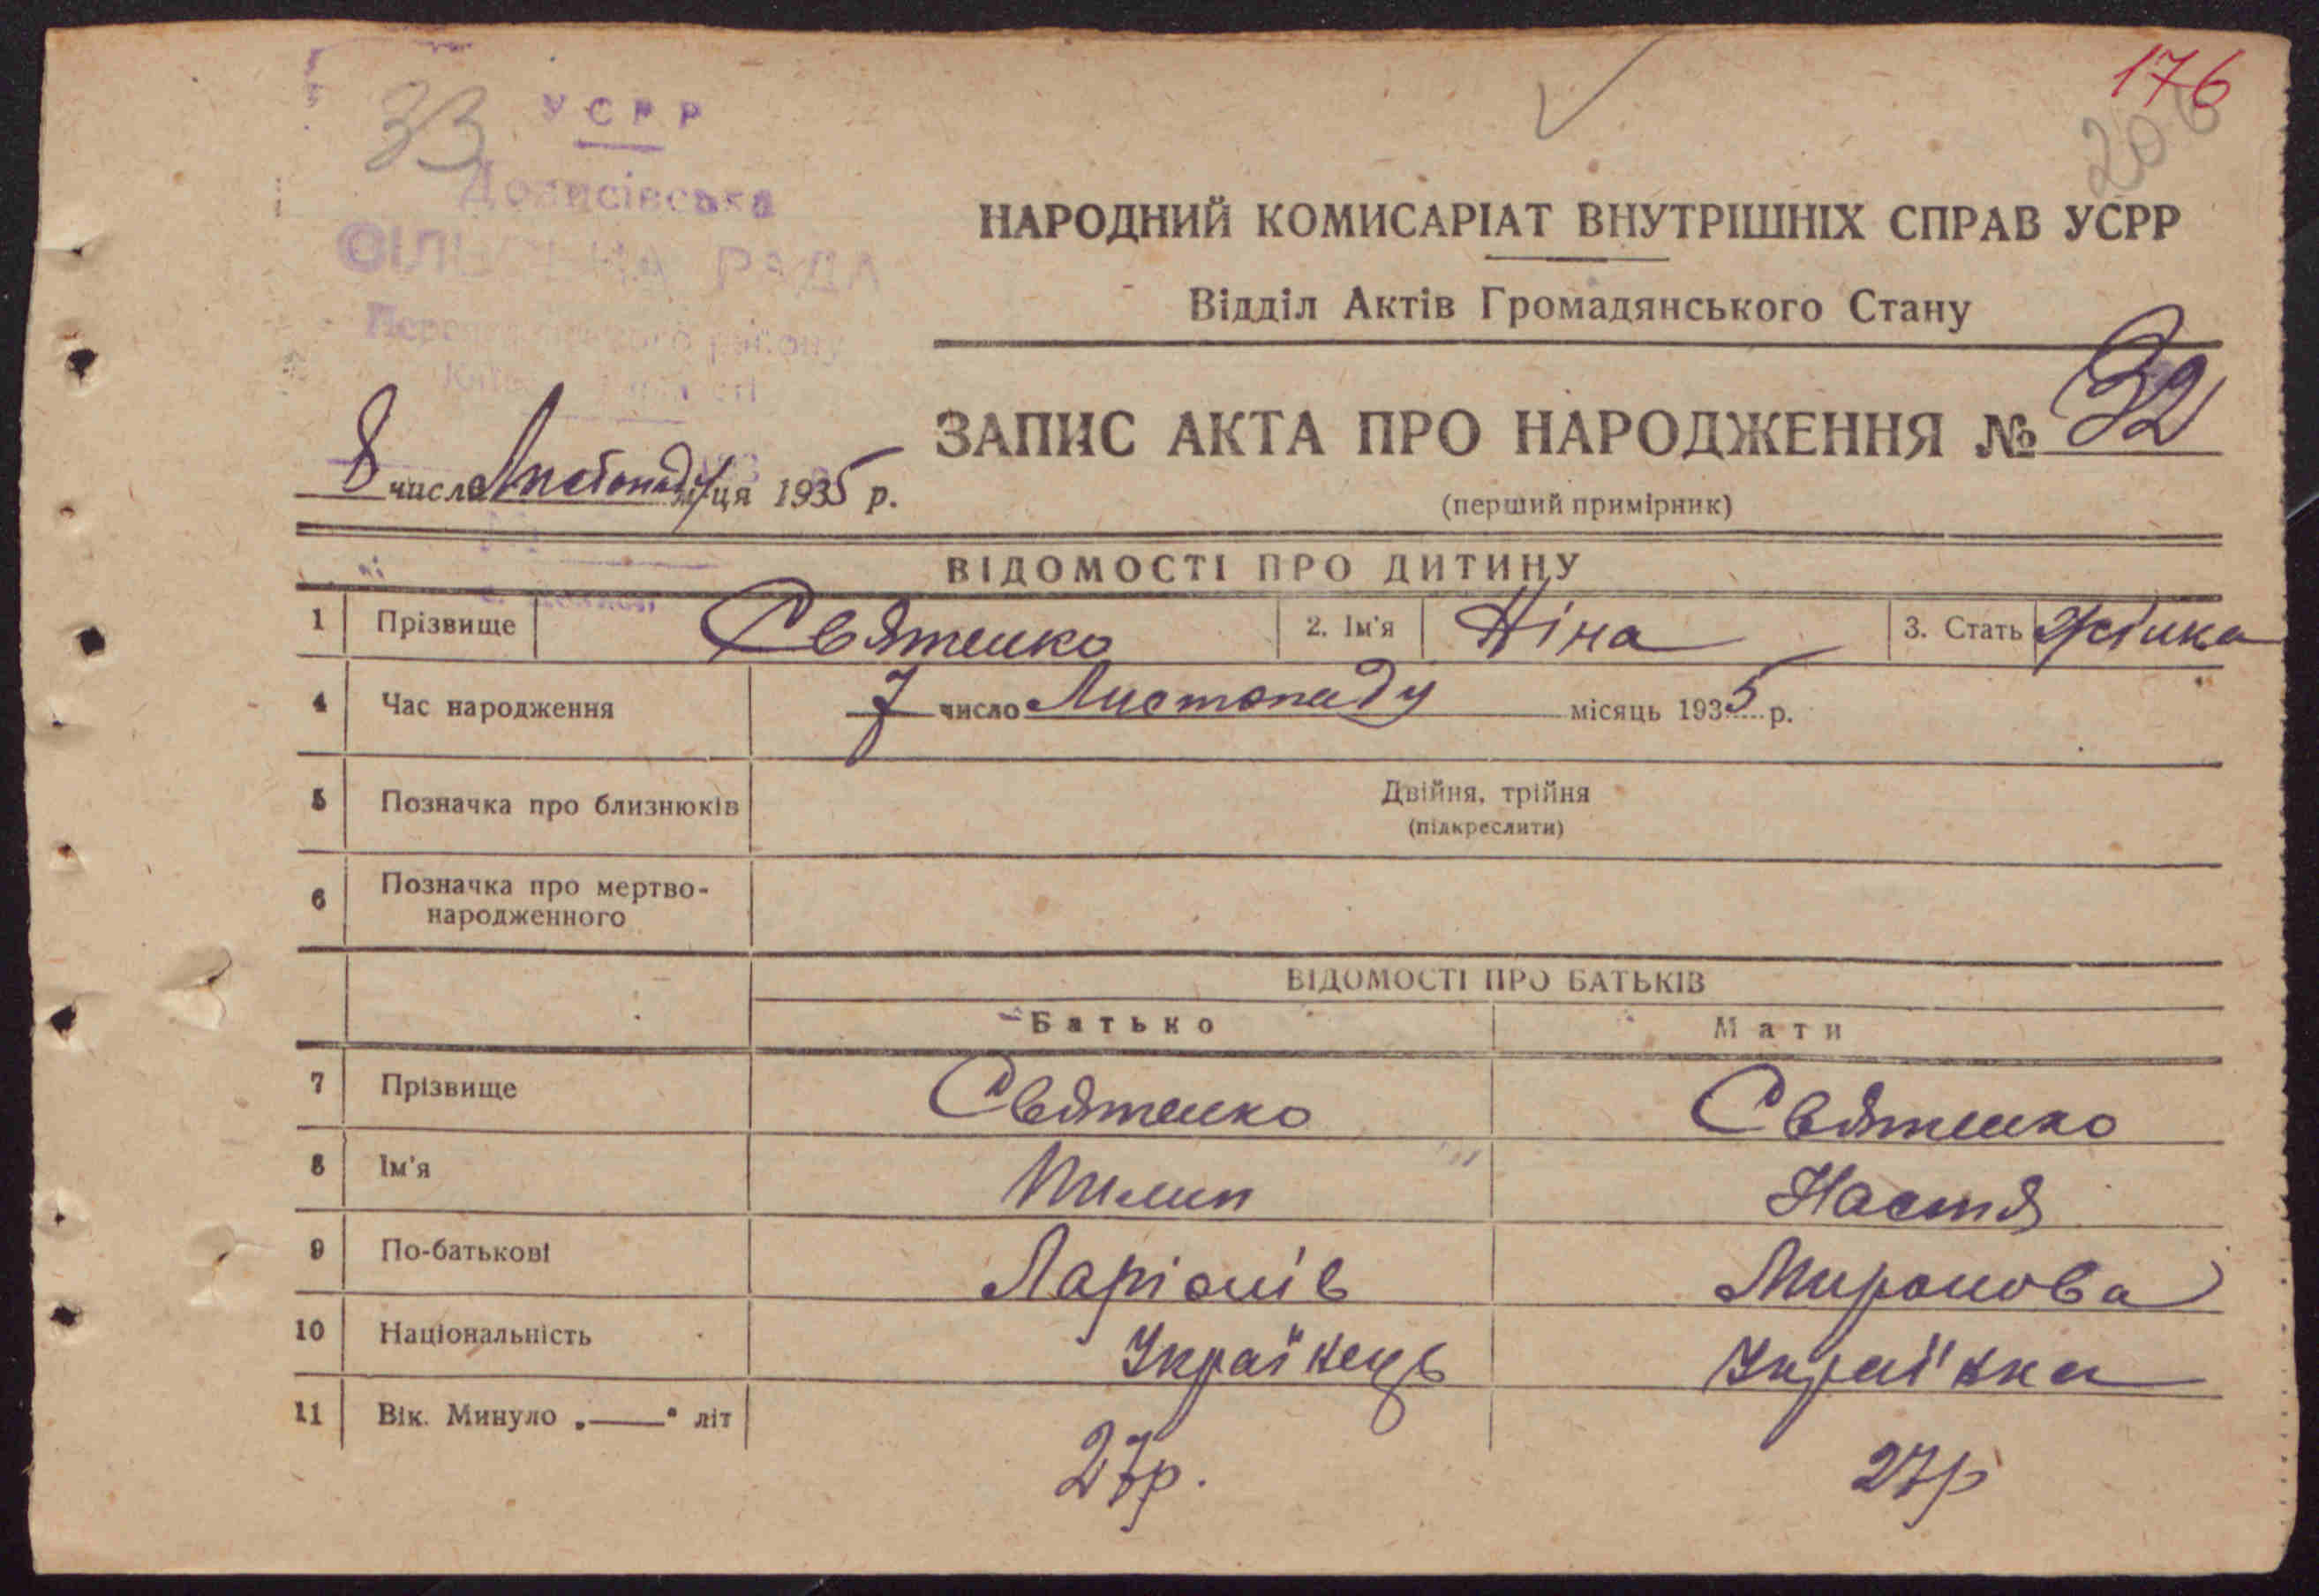 176
206
33
УСРР
РАДА
району
НАРОДНИЙ КОМИСАРІАТ ВНУТРІШНІХ СПРАВ УСРР
Відділ Актів Громадянського Стану
ЗАПИС АКТА ПРО НАРОДЖЕННЯ № 32
(перший примірник)
8 число Листопаду м/ця 1935 р.
ВІДОМОСТІ ПРО ДИТИНУ
1 Прізвище Святенко 2. Ім'я Ніна 3. Стать Жінка
4 Час народження 7 число Листопаду місяць 1935 р.
5 Позначка про близнюків Двійня, трійня
(підкреслити)
6 Позначка про мертво-
народженного
ВІДОМОСТІ ПРО БАТЬКІВ
Батько Мати
7 Прізвище Святенко Святенко
8 Ім'я Пилип Настя
9 По-батькові Ларіонів Миронова
10 Національність Українець Українка
11 Вік. Минуло „——" літ 27р. 27р